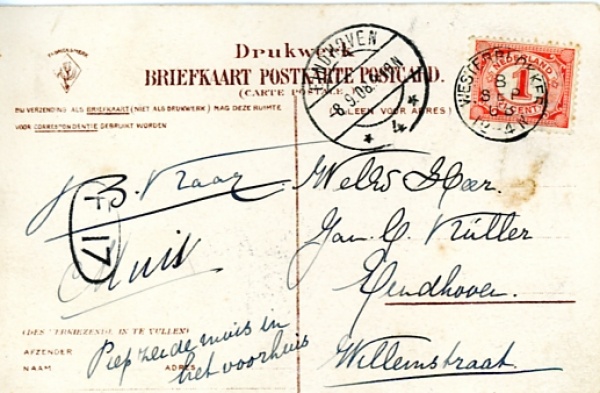 FABRIEKSMERK
Drukwerk
BRIEFKAART POSTKARTE POSTCARD.
(CARTE POSTALE)
BIJ VERZENDING ALS BRIEFKAART (NIET ALS DRUKWERK) MAG DEZE RUIMTE
VOOR CORRESPONDENTIE GEBRUIKT WORDEN
(ALLEEN VOOR ADRES)
EINDHOVEN
8.9.08
NEDERLAND
1
CENT
WESTERBROEKER
8
8
B. Vraag.
Muis
17
Piep zei de muis in
het voorhuis
(DES VERKIEZENDE IN TE VULLEN)
AFZENDER
NAAM
ADRES
WelEd Heer.
Jan C. Rütter
Eindhoven.
Willemstraat.